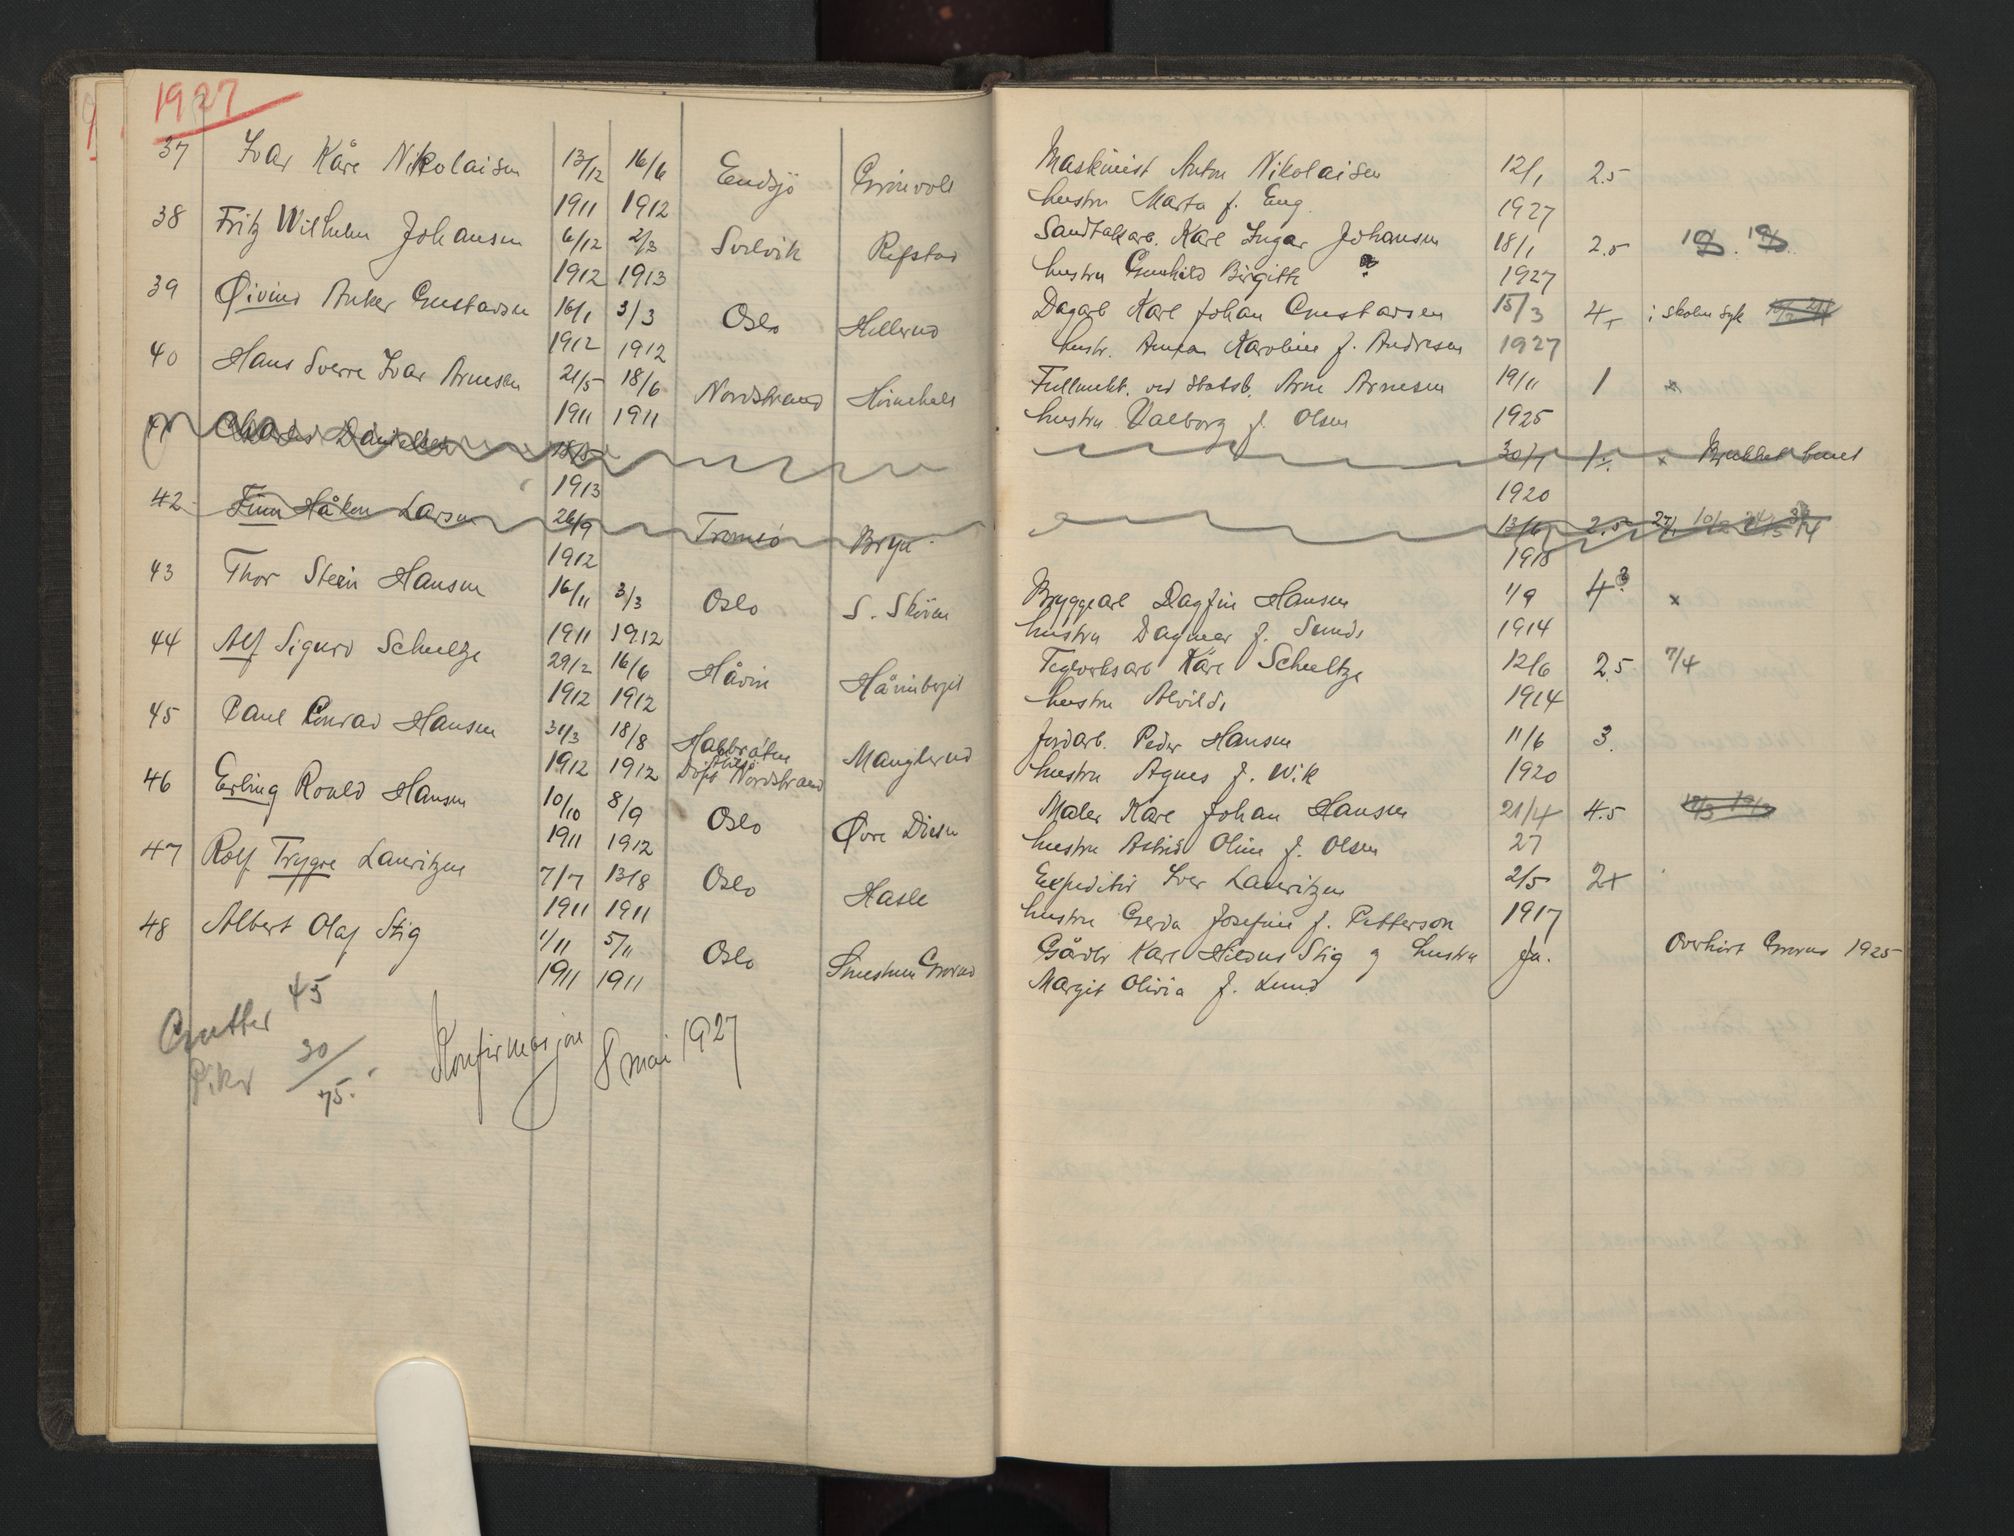 1927
37 Ivar Kåre Nikolaisen 13/12 16/6
1911 1912
Endsjö Grönvold
38 Fritz Wilhelm Johansen 6/12 2/3
1912 1913
Svelvik Refstad
39 Øivind Anker Gustavsen 16/1 3/3
1912 1912
Oslo Hellerud
40 Hans Sverre Ivar Arnesen 21/5 18/6
1911 1911
Nordstrand
41 Charles Danielsen 18/5
1913
42 Finn Håkon Larsen 26/9
1912
Tromsö Bryn
43 Thor Stein Hansen 16/11 3/3
1911 1912
Oslo S. Sköien
44 Alf Sigurd Schultze 29/2 16/6
1912 1912
Håvin
45 Paul Conrad Hansen 31/3 18/8
1912 1912
Döpt Nordstrand Manglerud
46 Erling Roald Hansen 10/10 8/9
1911 1912
Oslo Øvre Disen
47 Rolf Trygve Lauritzen 7/7 13/8
1911 1911
Oslo Hasle
48 Albert Olaf Stig 1/11 5/11
1911 1911
Oslo Grorud
Gutter 45
Piker 30
75.
Konfirmasjon 8 mai 1927
Maskinist Anton Nikolaisen 12/1 2.5
hustru Marta f. Eng. 1927
Sandtakarb. Karl Ingar Johansen 18/1 2.5
hustru Gunhild Birgitte ? 1927
Dagarb Karl Johan Gustavsen 15/3 4+ i skolen syk
hustr. Anna Karoline f. Andresen 1927
Fullmekt. ved statsb. Arne Arnesen 19/11 1 x
hustru Valborg f. Olsen 1925
30/7 1 x Brukket benet
1920
13/6 2.5 27/1 10/2 24/3
1918
Bryggearb Dagfin Hansen 1/9 4 3 x
hustru Dagmar f. Sund 1914
Teglverksarb Kåre Schultze 12/6 2.5 7/4
hustru Alvilde 1914
Jordarb. Peder Hansen 11/6 3.
hustru Agnes f. Wik 1920
Maler Kåre Johan Hansen 21/4 4.5
hustru Astrid Oline f. Olsen 27
Expeditör Iver Lauritzen 2/5 2+
hustru Gerda Josefine f. Petterson 1917
Gårdbr Karl Hilsnes Stig og hustru Ja. Overhört Grorud 1925
Margit Olivia f. Lund